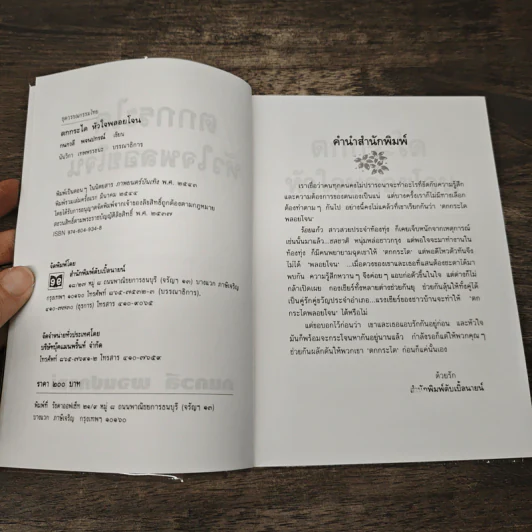 ชุดวรรณกรรมไทย
ตกกระได หัวใจพลอยโจน
กนกวลี พจนปกรณ์ เขียน
นันวิภา เทพหรรษะ บรรณาธิการ
พิมพ์เป็นตอน ๆ ในนิตยสาร ภาพยนตร์บันเทิง พ.ศ. ๒๕๔๓
พิมพ์รวมเล่มครั้งแรก มีนาคม ๒๕๔๔
โดยได้รับการอนุญาตจัดพิมพ์จากเจ้าของลิขสิทธิ์ถูกต้องตามกฎหมาย
สงวนลิขสิทธิ์ตามพระราชบัญญัติลิขสิทธิ์ พ.ศ. ๒๕๓๗
ISBN 974-604-934-8
จัดพิมพ์โดย
สำนักพิมพ์ดับเบิ้ลนายน์
๑๘/๒๗ หมู่ ๘ ถนนพาณิชยการธนบุรี (จรัญฯ ๑๓) บางแวก ภาษีเจริญ
กรุงเทพฯ ๑๐๑๖๐
จัดจำหน่ายทั่วประเทศโดย
บริษัทบุ๊คแมนพริ้นท์ จำกัด
ราคา ๒๐๐ บาท
พิมพ์ที่ วัชดาออฟเซ็ท ๒๑/๑ หมู่ ๘ ถนนพาณิชยการธนบุรี (จรัญฯ ๑๓)
บางแวก ภาษีเจริญ กรุงเทพฯ ๑๐๑๖๐
คำนำสำนักพิมพ์
เราเชื่อว่าคนทุกคนคงไม่ปรารถนาจะทำอะไรที่ขัดกับความรู้สึก
และความต้องการของตนเองเป็นแน่ แต่บางครั้งเราก็ไม่มีทางเลือก
ต้องทำตาม ๆ กันไป อย่างนี้คงไม่แคล้วที่เราเรียกกันว่า 'ตกกระได
พลอยโจน'
ร้อยแก้ว สาวสวยประจำท้องทุ่ง ก็เคยเจ็บหนักจากเหตุการณ์
เช่นนั้นมาแล้ว...ชลชาติ หนุ่มหล่อชาวกรุง แต่พอใจจะมาทำงานใน
ท้องทุ่ง ก็มีคนพยายามฉุดเขาให้ 'ตกกระได' แต่พอดีไหวตัวทันจึง
ไม่ได้ 'พลอยโจน' ...เมื่อดวงของเขาและเธอที่แสนต้องชะตาได้มา
พบกัน ความรู้สึกหวานๆ จึงค่อยๆ แอบก่อตัวขึ้นในใจ แต่ต่างก็ไม่
กล้าเปิดเผย กองเชียร์ทั้งหลายต่างช่วยกันยุ ช่วยกันลุ้นให้ทั้งคู่ได้
เป็นคู่รักคู่ขวัญประจำอำเภอ...แรงเชียร์ของชาวบ้านจะทำให้ 'ตก
กระไดพลอยโจน' ได้หรือไม่
แต่ขอบอกไว้ก่อนว่า เขาและเธอแอบรักกันอยู่ก่อน และหัวใจ
มันก็พร้อมจะกระโจนหากันอยู่นานแล้ว กำลังรอก็แต่ให้พวกคุณๆ
ช่วยกันผลักดันให้พวกเขา 'ตกกระได' ก่อนก็แค่นั้นเอง
ด้วยรัก
สำนักพิมพ์ดับเบิ้ลนายน์